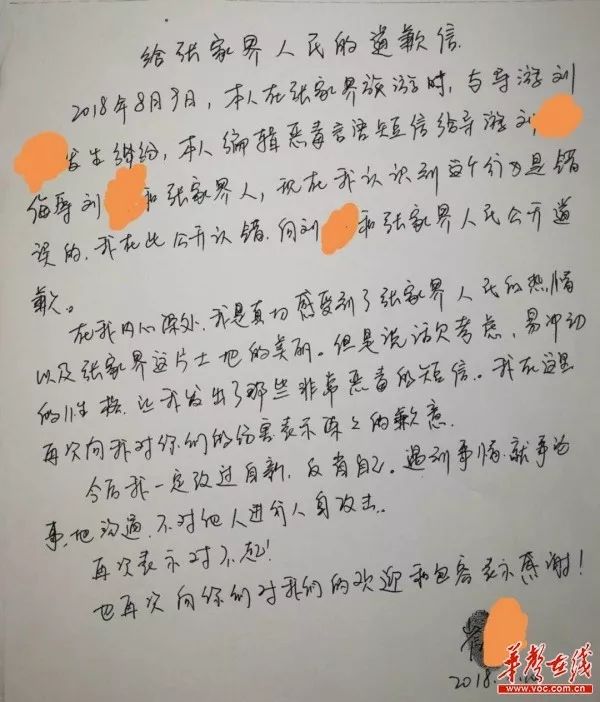 给张家界人民的道歉信
2018年8月9日,本人在张家界旅游时,与导游刘
发生纠纷,本人编辑恶毒言语短信给导游刘
侮辱刘 和张家界人,现在我认识到这个行为是错
误的,我在此公开认错,向刘 和张家界人民公开道
歉。
在我内心深处,我是真切感受到了张家界人民的热情
以及张家界这片土地的美丽。但是说话欠考虑,易冲动
的性格,让我发出了那些非常恶毒的短信。我在这里
再次向我对你们的伤害表示深深的歉意.
今后我一定改过自新,反省自己。遇到事情就事论
事地沟通,不对他人进行人身攻击.
再次表示对不起!
也再次向你们对我们的欢迎和包容表示感谢!
2018.
华声在线
www.voc.com.cn